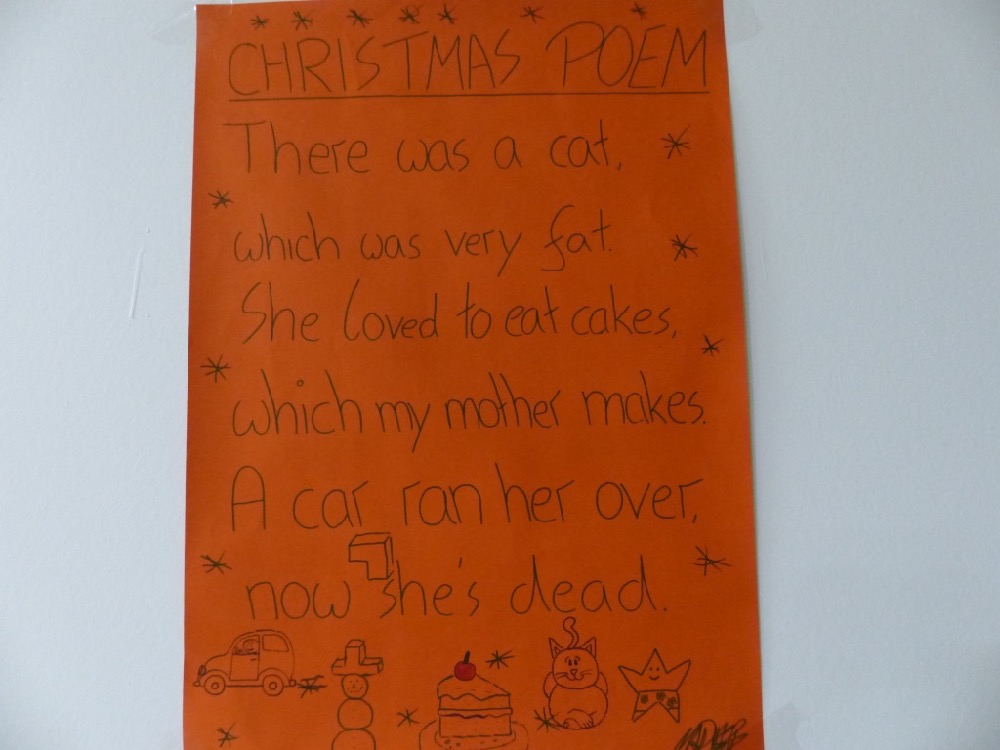 CHRISTMAS POEM
There was a cat,
which was very fat.
She loved to eat cakes,
which my mother makes.
A car ran her over,
now she's dead.